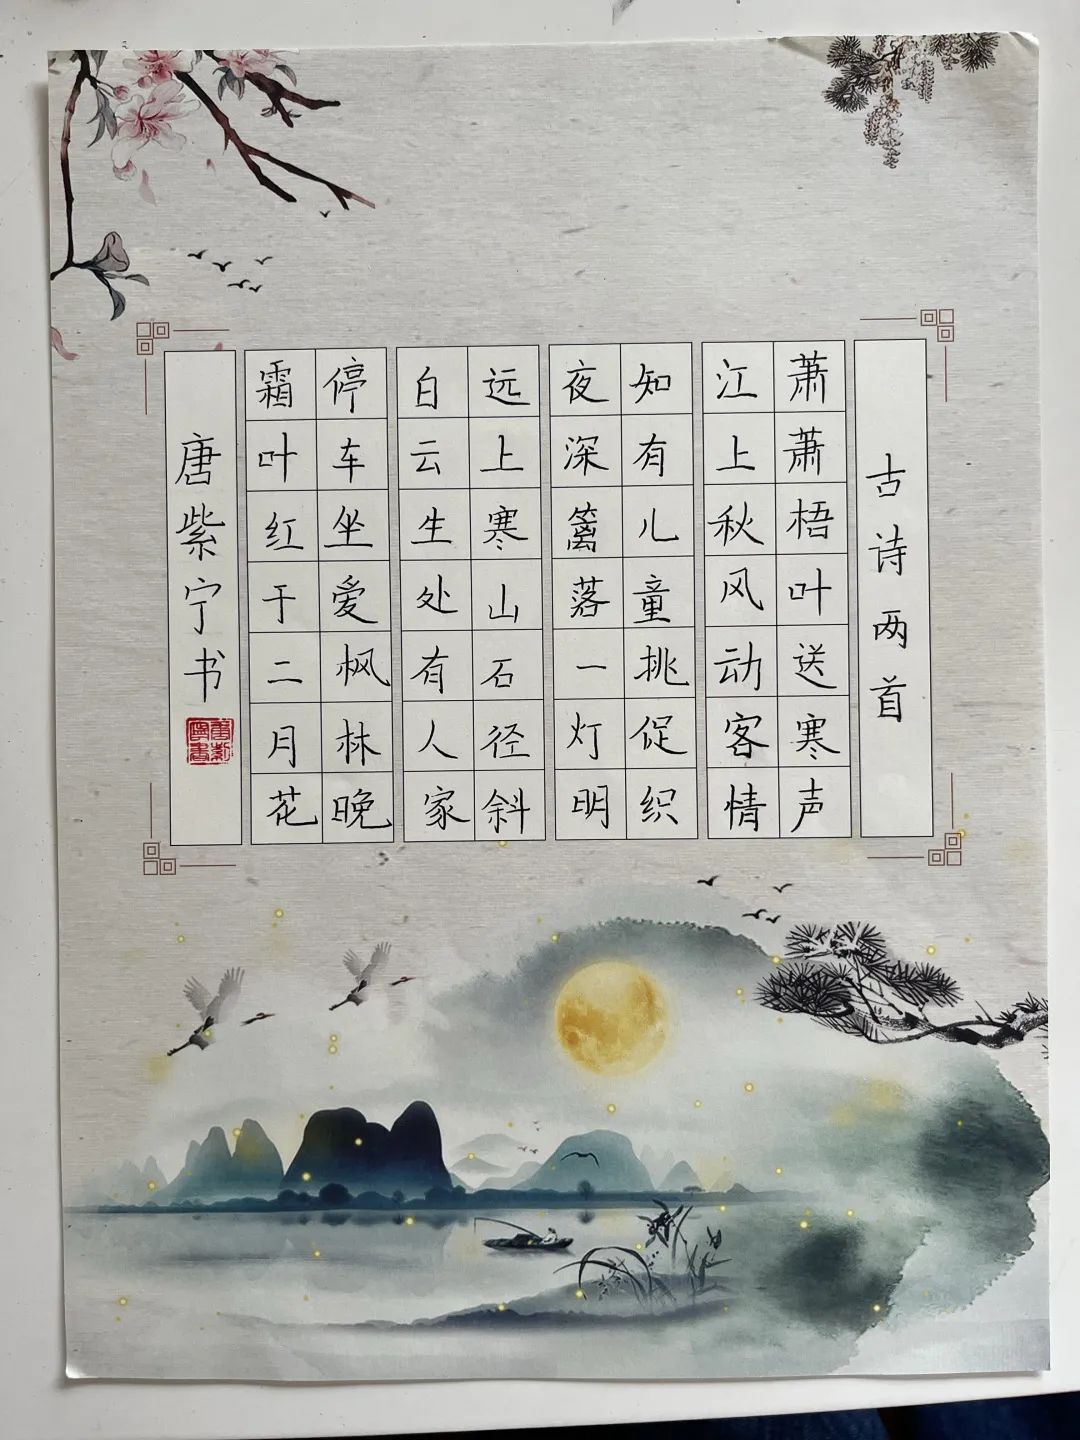 古诗两首
萧萧梧叶送寒声
江上秋风动客情
知有儿童挑促织
夜深篱落一灯明
远上寒山石径斜
白云生处有人家
停车坐爱枫林晚
霜叶红于二月花
唐紫宁书
唐紫宁书